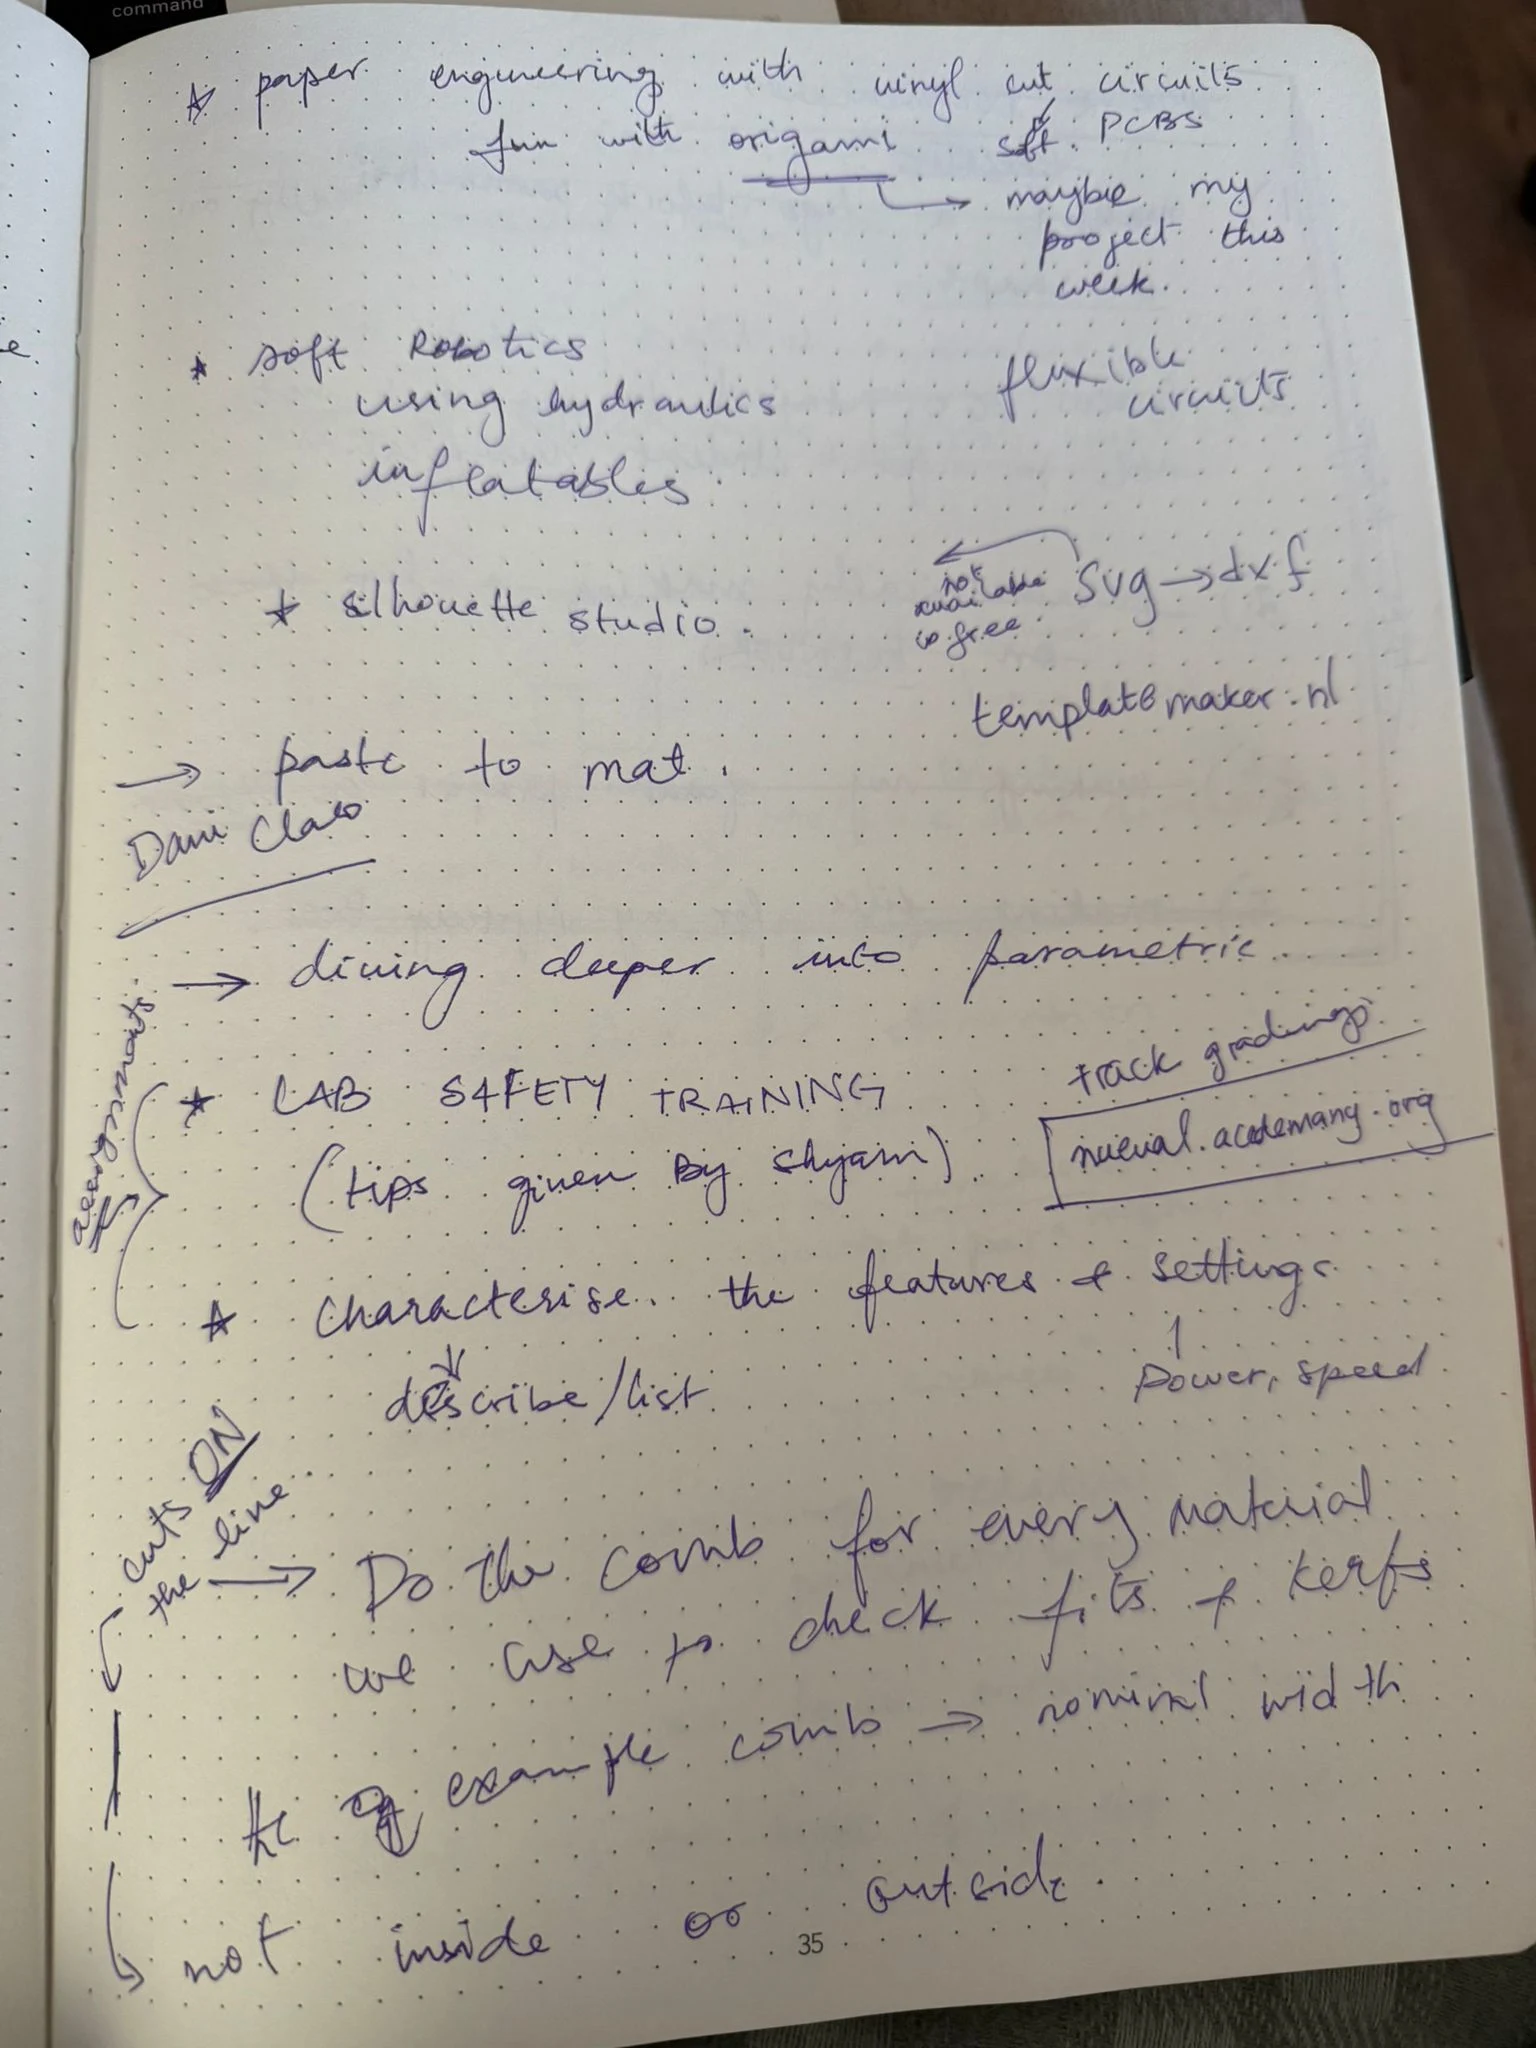 command
☆ paper engineering with vinyl cut circuits
fun with origami
soft PCBs
→ maybe my
project this
week.
★ soft Robotics
using hydraulics
inflatables
flexible
circuits
★ silhouette studio.
svg → dxf
not
available
in free
templatemaker.nl
→ paste to mat.
Dani Clalo
→ diving deeper into parametric
assignments
★ LAB SAFETY TRAINING
(tips given By Shyam)
track gradings
nueval.academany.org
☆ Characterise the features & settings
describe/list
power, speed
cuts ON
the line
→ Do the comb for every material
we use to check fits & kerfs
the eg example comb → nominal width
not inside or outside
35